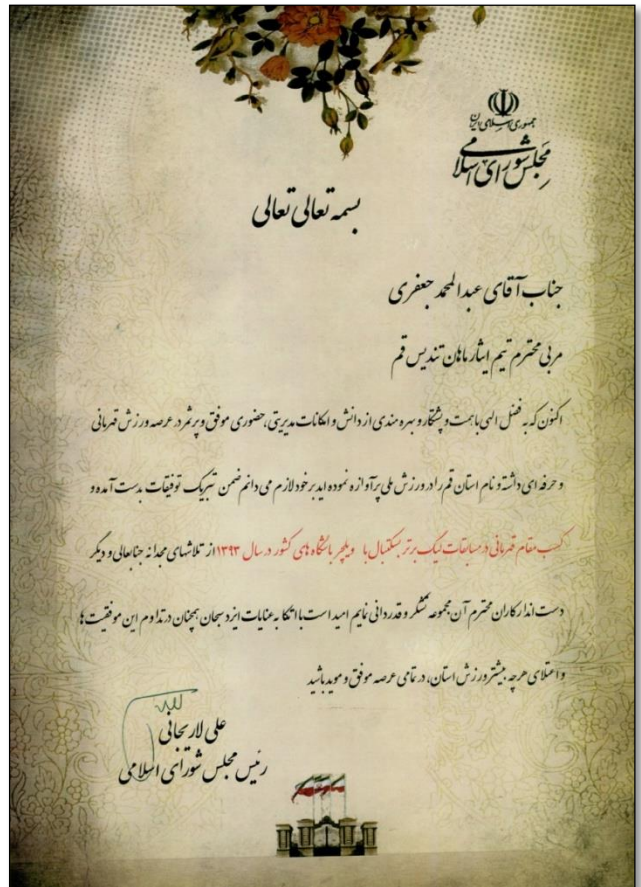 جمهوری اسلامی ایران
مجلس شورای اسلامی
بسمه تعالی تعالی
جناب آقای عبدالمحمد جعفری
مربی محترم تیم ایثار ماهان تندیس قم
اکنون که به فضل الهی با همت و پشتکار و بهره مندی از دانش و امکانات مدیریتی، حضوری موفق و پرثمر در عرصه ورزش قهرمانی
و حرفه ای داشته و نام استان قم را در ورزش ملی پرآوازه نموده اید بر خود لازم می دانم ضمن تبریک توفیقات بدست آمده و
کسب مقام قهرمانی در مسابقات لیگ برتر بسکتبال با ویلچر باشگاه های کشور در سال ۱۳۹۳ از تلاشهای مجدانه جنابعالی و دیگر
دست اندارکاران محترم آن مجموعه تشکر و قدردانی نمایم امید است با اتکا به عنایات ایزد سبحان همچنان در تداوم این موفقیت ها
و اعتلای هرچه بیشتر ورزش استان، در تمامی عرصه موفق و موید باشید
علی لاریجانی
رئیس مجلس شورای اسلامی